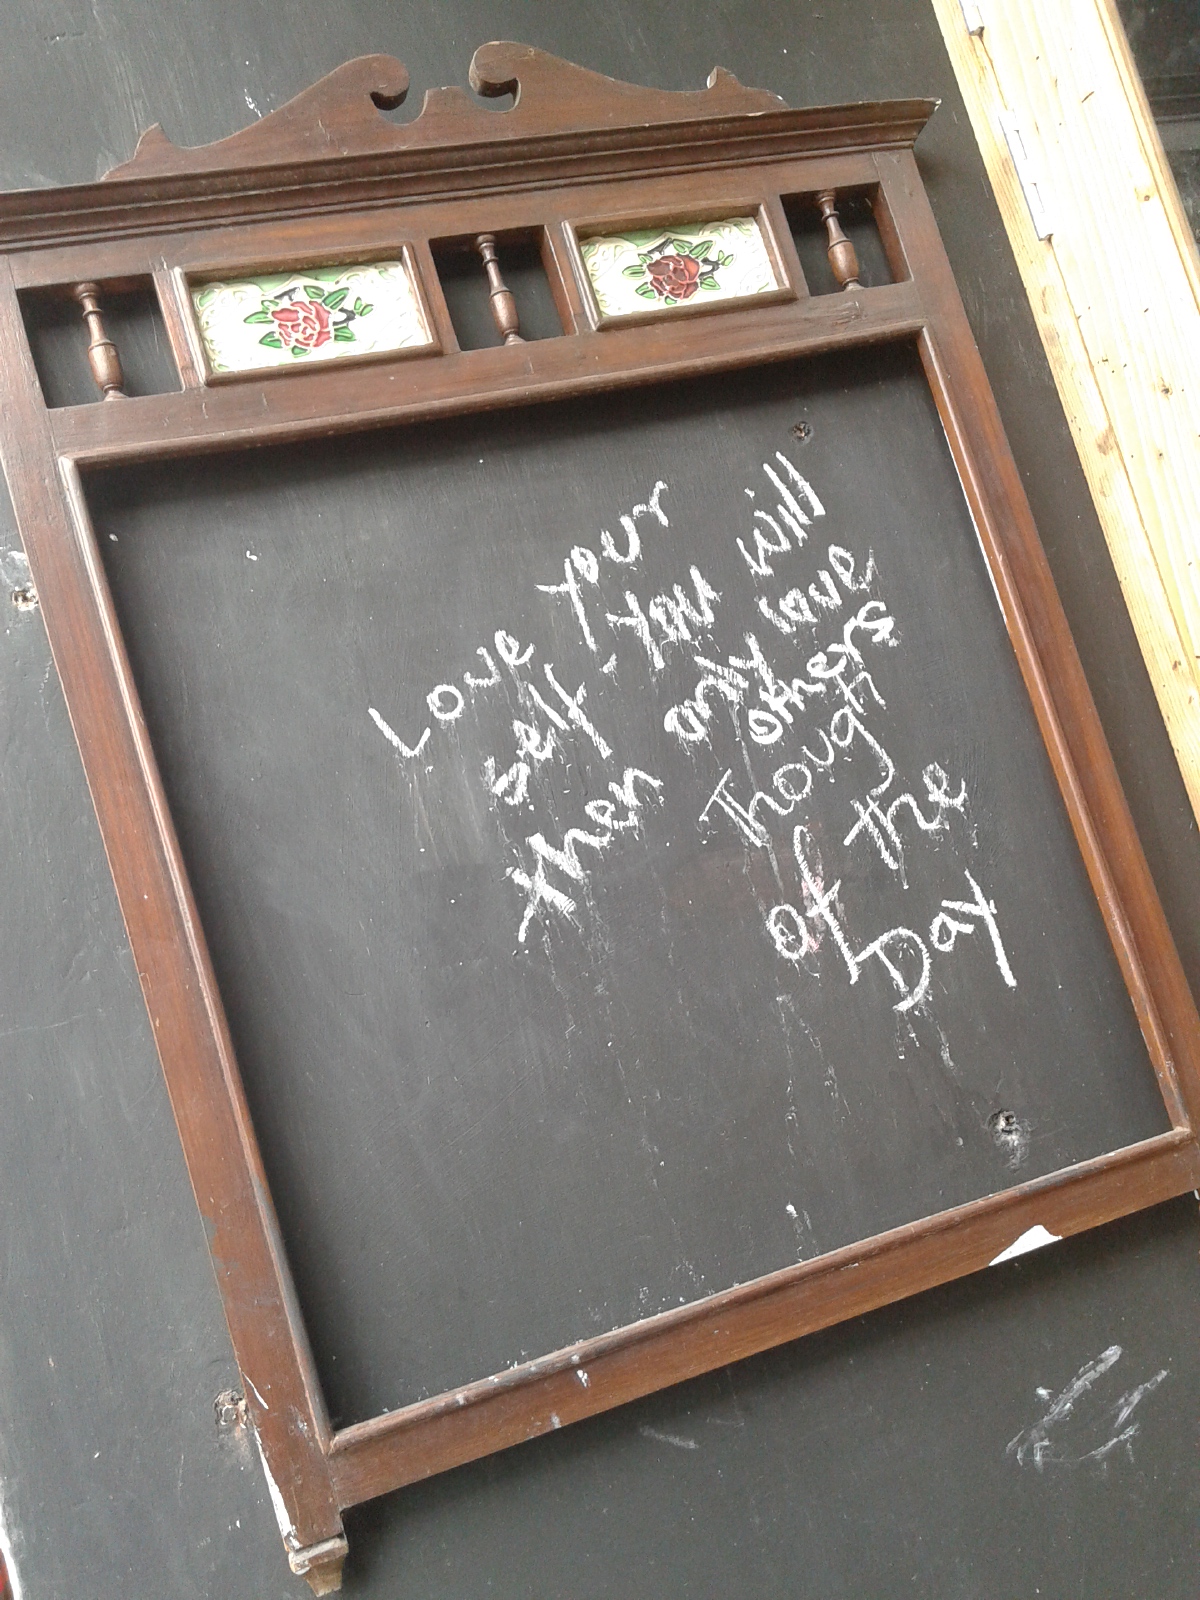 Love Your
self - You will
then only love
others
Though
of the
Day